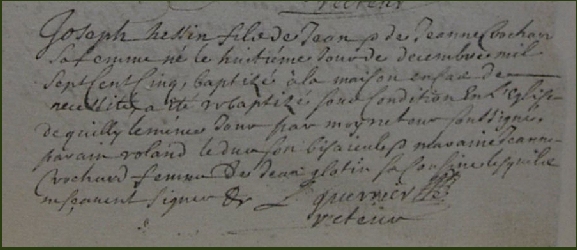 recteur
Joseph hessin fils de Jean & de Jeanne Cochar
sa femme né le huitiéme Jour de decembre mil
sept Cent Cinq, baptizé a la maison en cas de
necessité, a eté rebaptizé sous Condition En L'eglise
de quilly le meme Jour par moy recteur soussigné
parain roland le duc son bisaieul & maraine Jeanne
Crochard femme de Jean glotin sa Cousine lesquels
ne scavent signer &c L guerrier
recteur